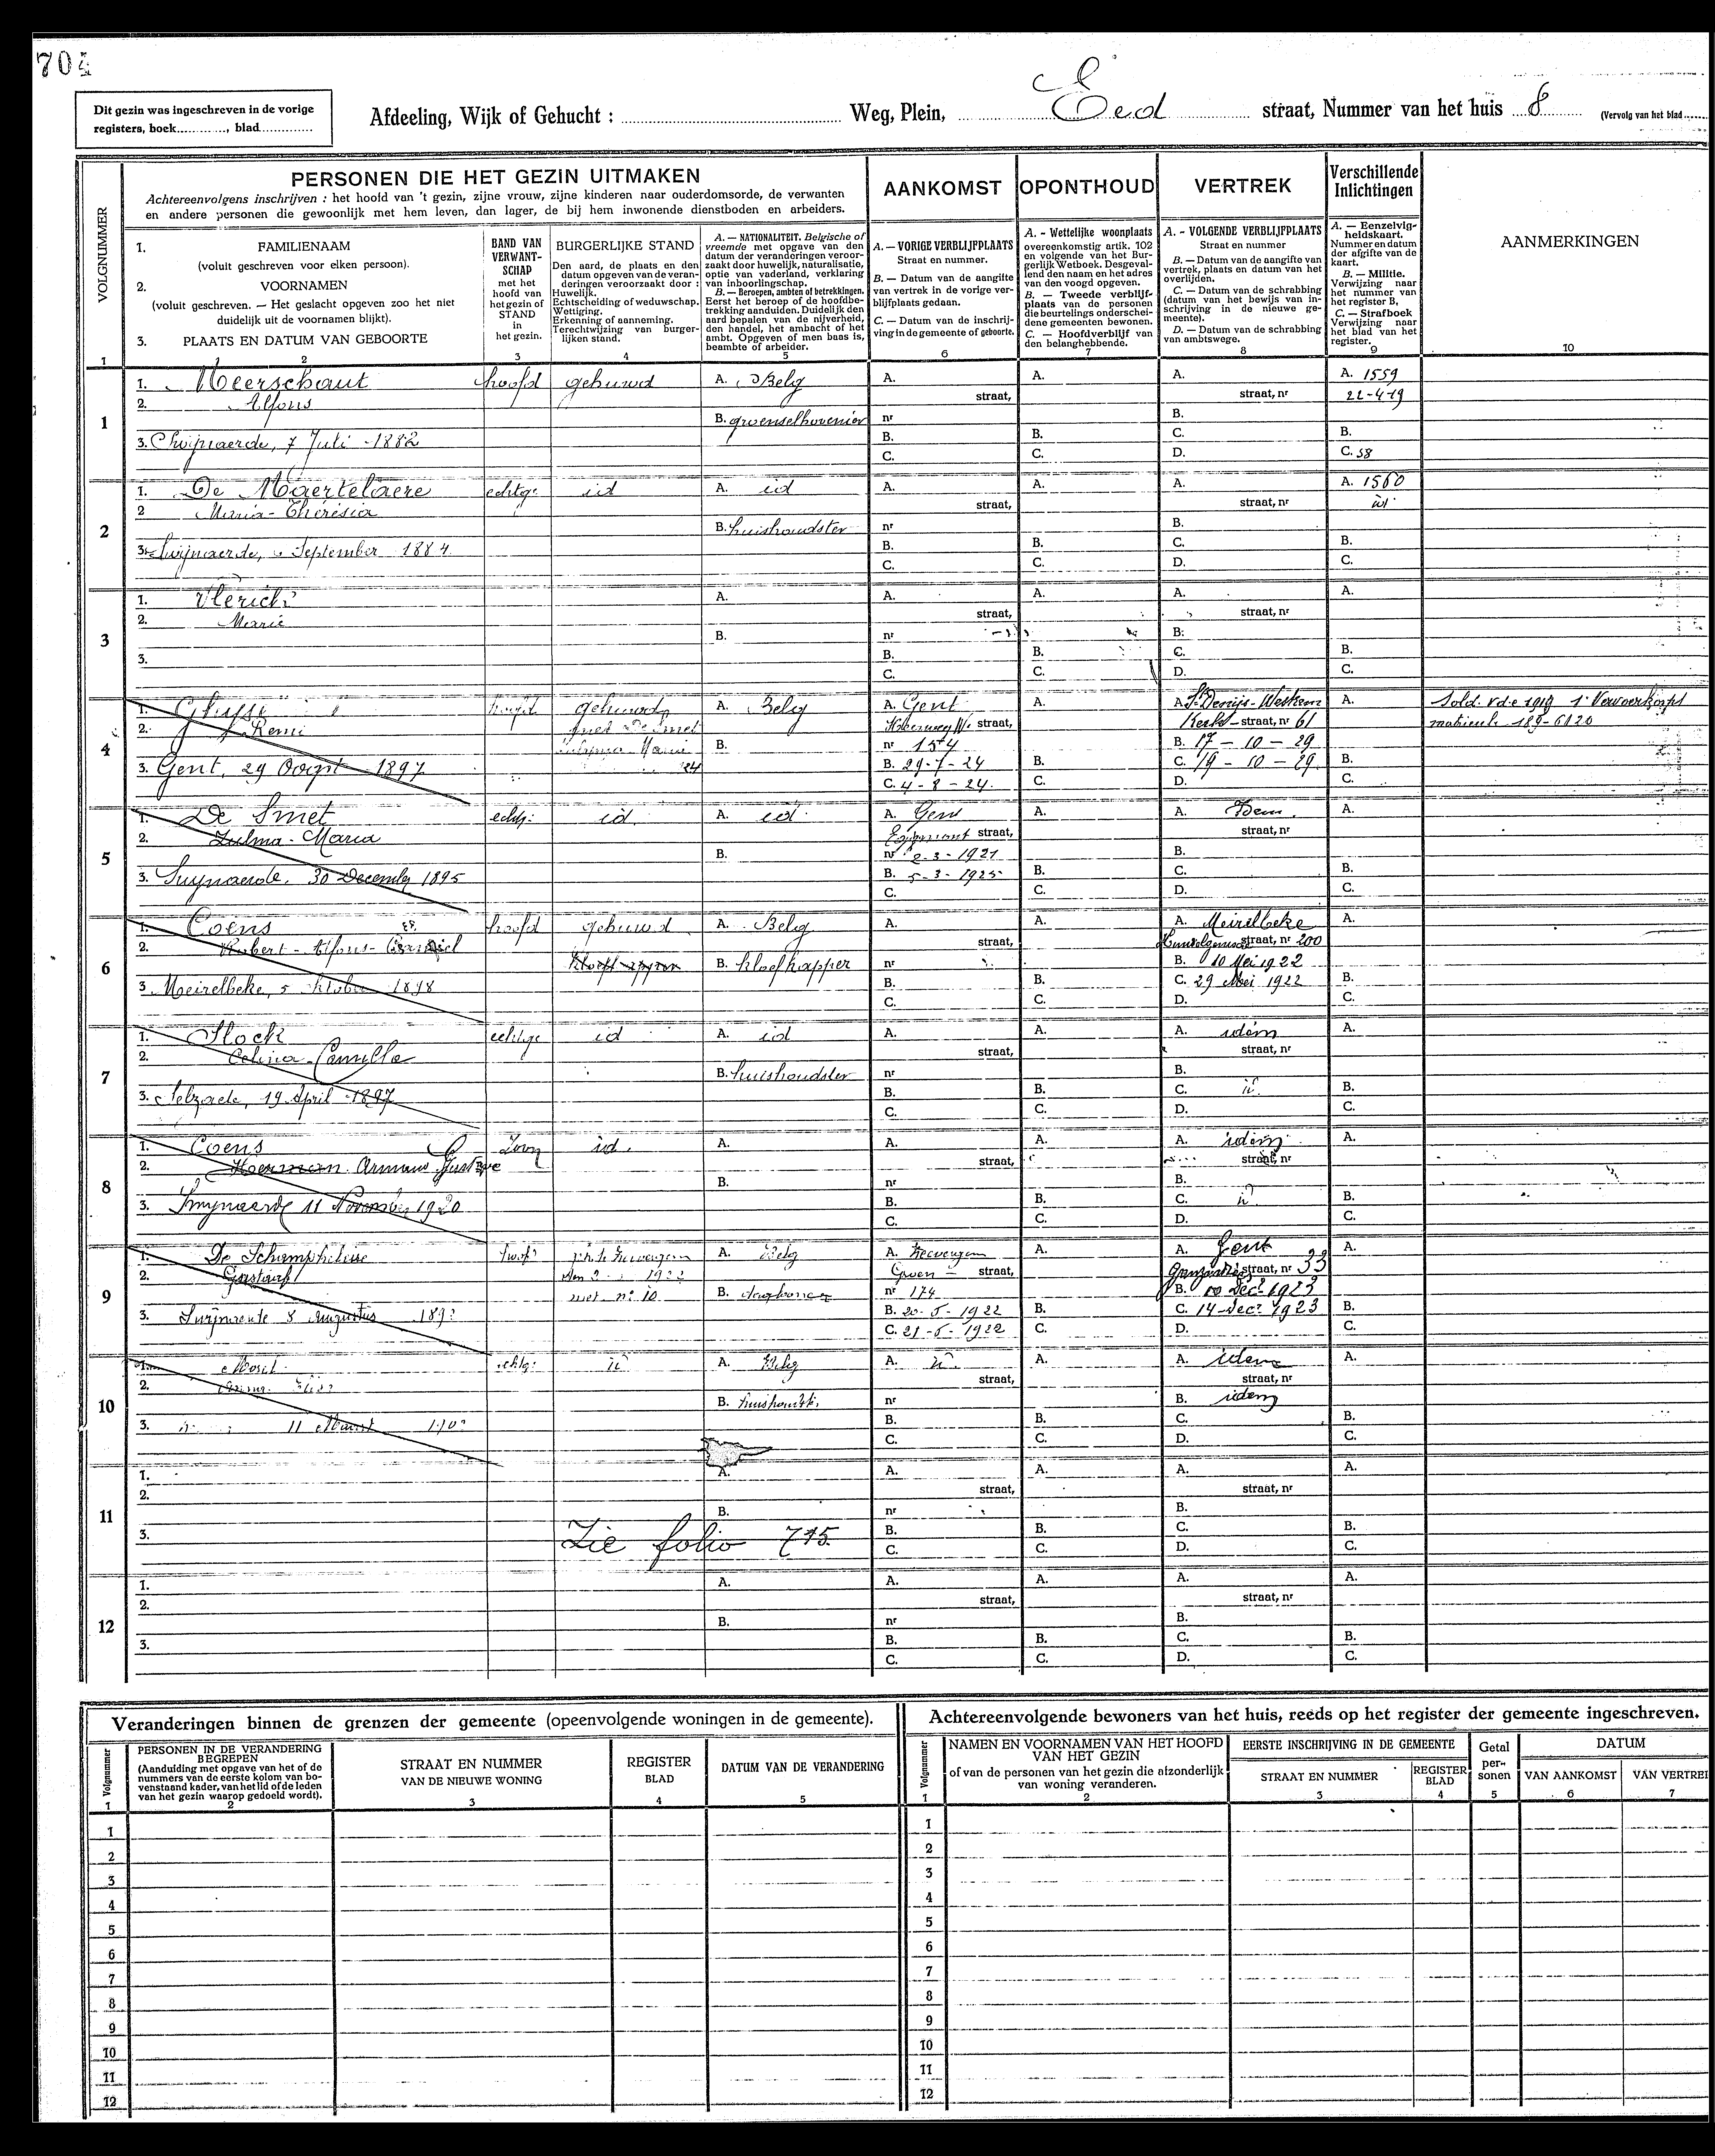 70
Dit gezin was ingeschreven in de vorige
registers, boek............, blad.............
Afdeeling, Wijk of Gehucht : ........ Weg, Plein, Eed straat, Nummer van het huis 8 (Vervolg van het blad ......
PERSONEN DIE HET GEZIN UITMAKEN
Achtereenvolgens inschrijven : het hoofd van 't gezin, zijne vrouw, zijne kinderen naar ouderdomsorde, de verwanten
en andere personen die gewoonlijk met hem leven, dan lager, de bij hem inwonende dienstboden en arbeiders.
AANKOMST
OPONTHOUD
VERTREK
Verschillende
Inlichtingen
VOLGNUMMER
1. FAMILIENAAM
(voluit geschreven voor elken persoon).
2. VOORNAMEN
(voluit geschreven. — Het geslacht opgeven zoo het niet
duidelijk uit de voornamen blijkt).
3. PLAATS EN DATUM VAN GEBOORTE
BAND VAN
VERWANT-
SCHAP
met het
hoofd van
het gezin of
STAND
in
het gezin.
BURGERLIJKE STAND
Den aard, de plaats en den
datum opgeven van de veran-
deringen veroorzaakt door :
Huwelijk.
Echtscheiding of weduwschap.
Wettiging.
Erkenning of aanneming.
Terechtwijzing van burger-
lijken stand.
A. — NATIONALITEIT. Belgische of
vreemde met opgave van den
datum der veranderingen veroor-
zaakt door huwelijk, naturalisatie,
optie van vaderland, verklaring
van inboorlingschap.
B. — Beroepen, ambten of betrekkingen.
Eerst het beroep of de hoofdbe-
trekking aanduiden. Duidelijk den
aard bepalen van de nijverheid,
den handel, het ambacht of het
ambt. Opgeven of men baas is,
beambte of arbeider.
A. — VORIGE VERBLIJFPLAATS
Straat en nummer.
B. — Datum van de aangifte
van vertrek in de vorige ver-
blijfplaats gedaan.
C. — Datum van de inschrij-
ving in de gemeente of geboorte.
A. - Wettelijke woonplaats
overeenkomstig artik. 102
en volgende van het Bur-
gerlijk Wetboek. Desgeval-
lend den naam en het adres
van den voogd opgeven.
B. — Tweede verblijf-
plaats van de personen
die beurtelings onderschei-
dene gemeenten bewonen.
C. — Hoofdverblijf van
den belanghebbende.
A. - VOLGENDE VERBLIJFPLAATS
Straat en nummer
B. — Datum van de aangifte van
vertrek, plaats en datum van het
overlijden.
C. — Datum van de schrabbing
(datum van het bewijs van in-
schrijving in de nieuwe ge-
meente).
D. — Datum van de schrabbing
van ambtswege.
A. — Eenzelvig-
heidskaart.
Nummer en datum
der afgifte van de
kaart.
B. — Militie.
Verwijzing naar
het nummer van
het register B,
C. — Strafboek
Verwijzing naar
het blad van het
register.
AANMERKINGEN
1 1 2 3 4 5 6 7 8 9 10
1
1. Meerschaut hoofd gehuwd A. Belg A. A. A. A. 1559
2. Alfons straat, straat, nr 22-4-19
B. groenselhovenier nr B.
3. Swijnaerde, 7 Juli 1882 B. B. C. B.
C. C. D. C. 58
2
1. De Maertelaere echtg. id A. id A. A. A. A. 1560
2 Maria-Theresia straat, straat, nr id
B. huishoudster nr B.
3. Swijnaerde, September 1884 B. B. C. B.
C. C. D. C.
3
1. Vlerick A. A. A. A. A.
2. Marie straat, straat, nr
B. nr B.
3. B. B. C. B.
C. C. D. C.
4
1. hoofd gehuwd A. Belg A. Gent A. A. St Denijs-Westrem A. Sold. v.d.e 1919 1e Vervoerkorps
2. Remi met De Smet straat, Kerk straat, nr 61 matricule 189-6120
Maria B. nr 154 B. 17-10-29
3. Gent, 29 Oogst 1897 24 B. 29-7-24 B. C. 19-10-29 B.
C. 4-8-24 C. D. C.
5
1. De Smet echtg. id. A. id A. Gent A. A. Idem. A.
2. Zulma-Maria Egmont straat, straat, nr
B. nr 2-3-1921 B.
3. Swynaerde, 30 December 1895 B. 5-3-1925 B. C. B.
C. C. D. C.
6
1. Coens hoofd gehuwd A. Belg A. A. A. Meirelbeke A.
2. Robert-Alfons- straat, straat, nr 200
B. kloefkapper nr B. 10 Mei 1922
3. Meirelbeke, 5 Oktober 1898 B. B. C. 29 Mei 1922 B.
C. C. D. C.
7
1. Stock echtge id A. id A. A. A. idem A.
2. Celina-Camilla straat, straat, nr
B. huishoudster nr B.
3. Selzaete, 19 April 1897 B. B. C. id B.
C. C. D. C.
8
1. Coens Zoon id. A. A. A. A. idem A.
2. Herman Armand Gustave straat, straat, nr
B. nr B.
3. Swynaerde 11 November 1920 B. B. C. id B.
C. C. D. C.
9
1. De Schamphelaere hoofd A. Belg A. Zevergem A. A. Gent A.
2. Gustaaf 1922 straat, straat, nr 33
met n° 10 B. nr 174 B. 10 Dec 1923
3. Swijnaerde 8 Augustus B. 20-5-1922 B. C. 14 Dec 1923 B.
C. 21-5-1922 C. D. C.
10
1. echtg. id A. Belg A. id A. A. idem A.
2. straat, straat, nr
B. huishoudst. nr B. idem
3. 11 Maart B. B. C. B.
C. C. D. C.
11
1. A. A. A. A. A.
2. straat, straat, nr
B. nr B.
3. Zie folio 715. B. B. C. B.
C. C. D. C.
12
1. A. A. A. A. A.
2. straat, straat, nr
B. nr B.
3. B. B. C. B.
C. C. D. C.
Veranderingen binnen de grenzen der gemeente (opeenvolgende woningen in de gemeente).
Volgnummer
PERSONEN IN DE VERANDERING
BEGREPEN
(Aanduiding met opgave van het of de
nummers van de eerste kolom van bo-
venstaand kader, van het lid of de leden
van het gezin waarop gedoeld wordt).
STRAAT EN NUMMER
VAN DE NIEUWE WONING
REGISTER
BLAD
DATUM VAN DE VERANDERING
1 2 3 4 5
1
2
3
4
5
6
7
8
9
10
11
12
Achtereenvolgende bewoners van het huis, reeds op het register der gemeente ingeschreven.
Volgnummer
NAMEN EN VOORNAMEN VAN HET HOOFD
VAN HET GEZIN
of van de personen van het gezin die afzonderlijk
van woning veranderen.
EERSTE INSCHRIJVING IN DE GEMEENTE
STRAAT EN NUMMER
REGISTER
BLAD
Getal
per-
sonen
DATUM
VAN AANKOMST
VAN VERTREK
1 2 3 4 5 6 7
1
2
3
4
5
6
7
8
9
10
11
12